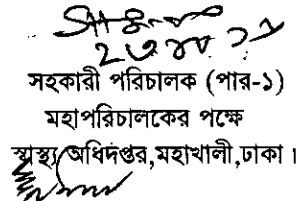 সহকারী পরিচালক (পার-১)
মহাপরিচালকের পক্ষে
স্বাস্থ্য অধিদপ্তর,মহাখালী,ঢাকা।